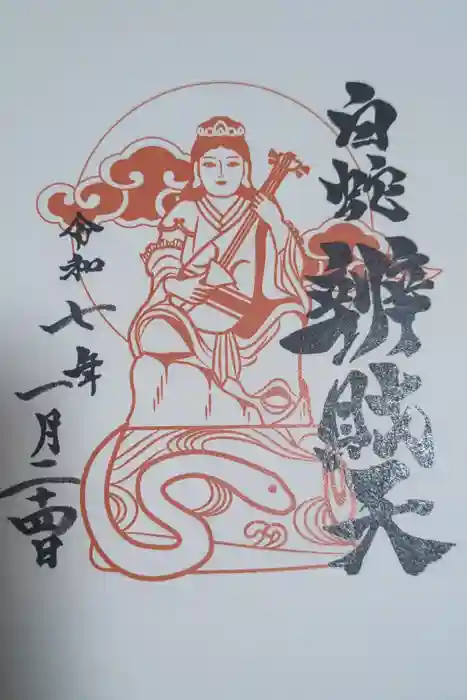 白蛇辨財天
令和七年
一月二十四日